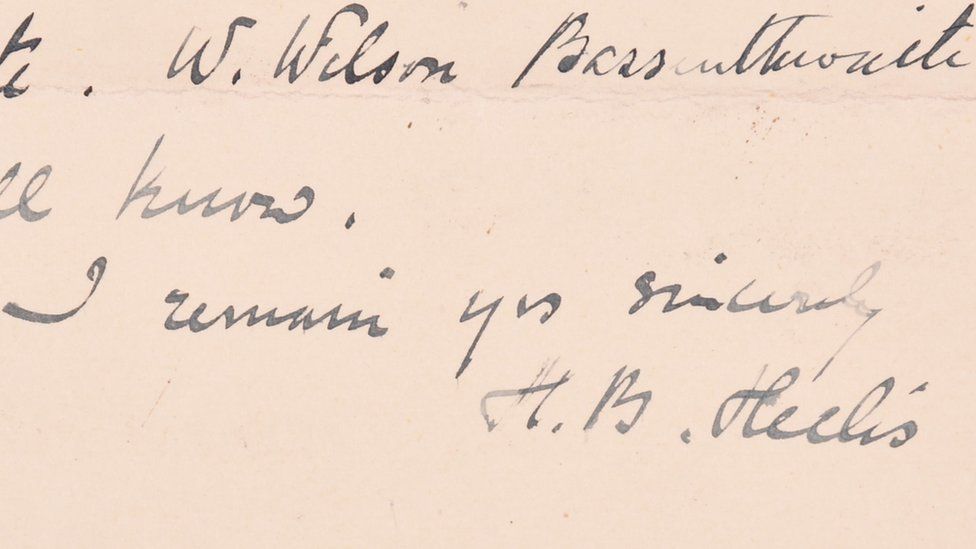 te. W. Wilson Bassenthwaite
ll know.
I remain yrs sincerely
H. B. Heelis